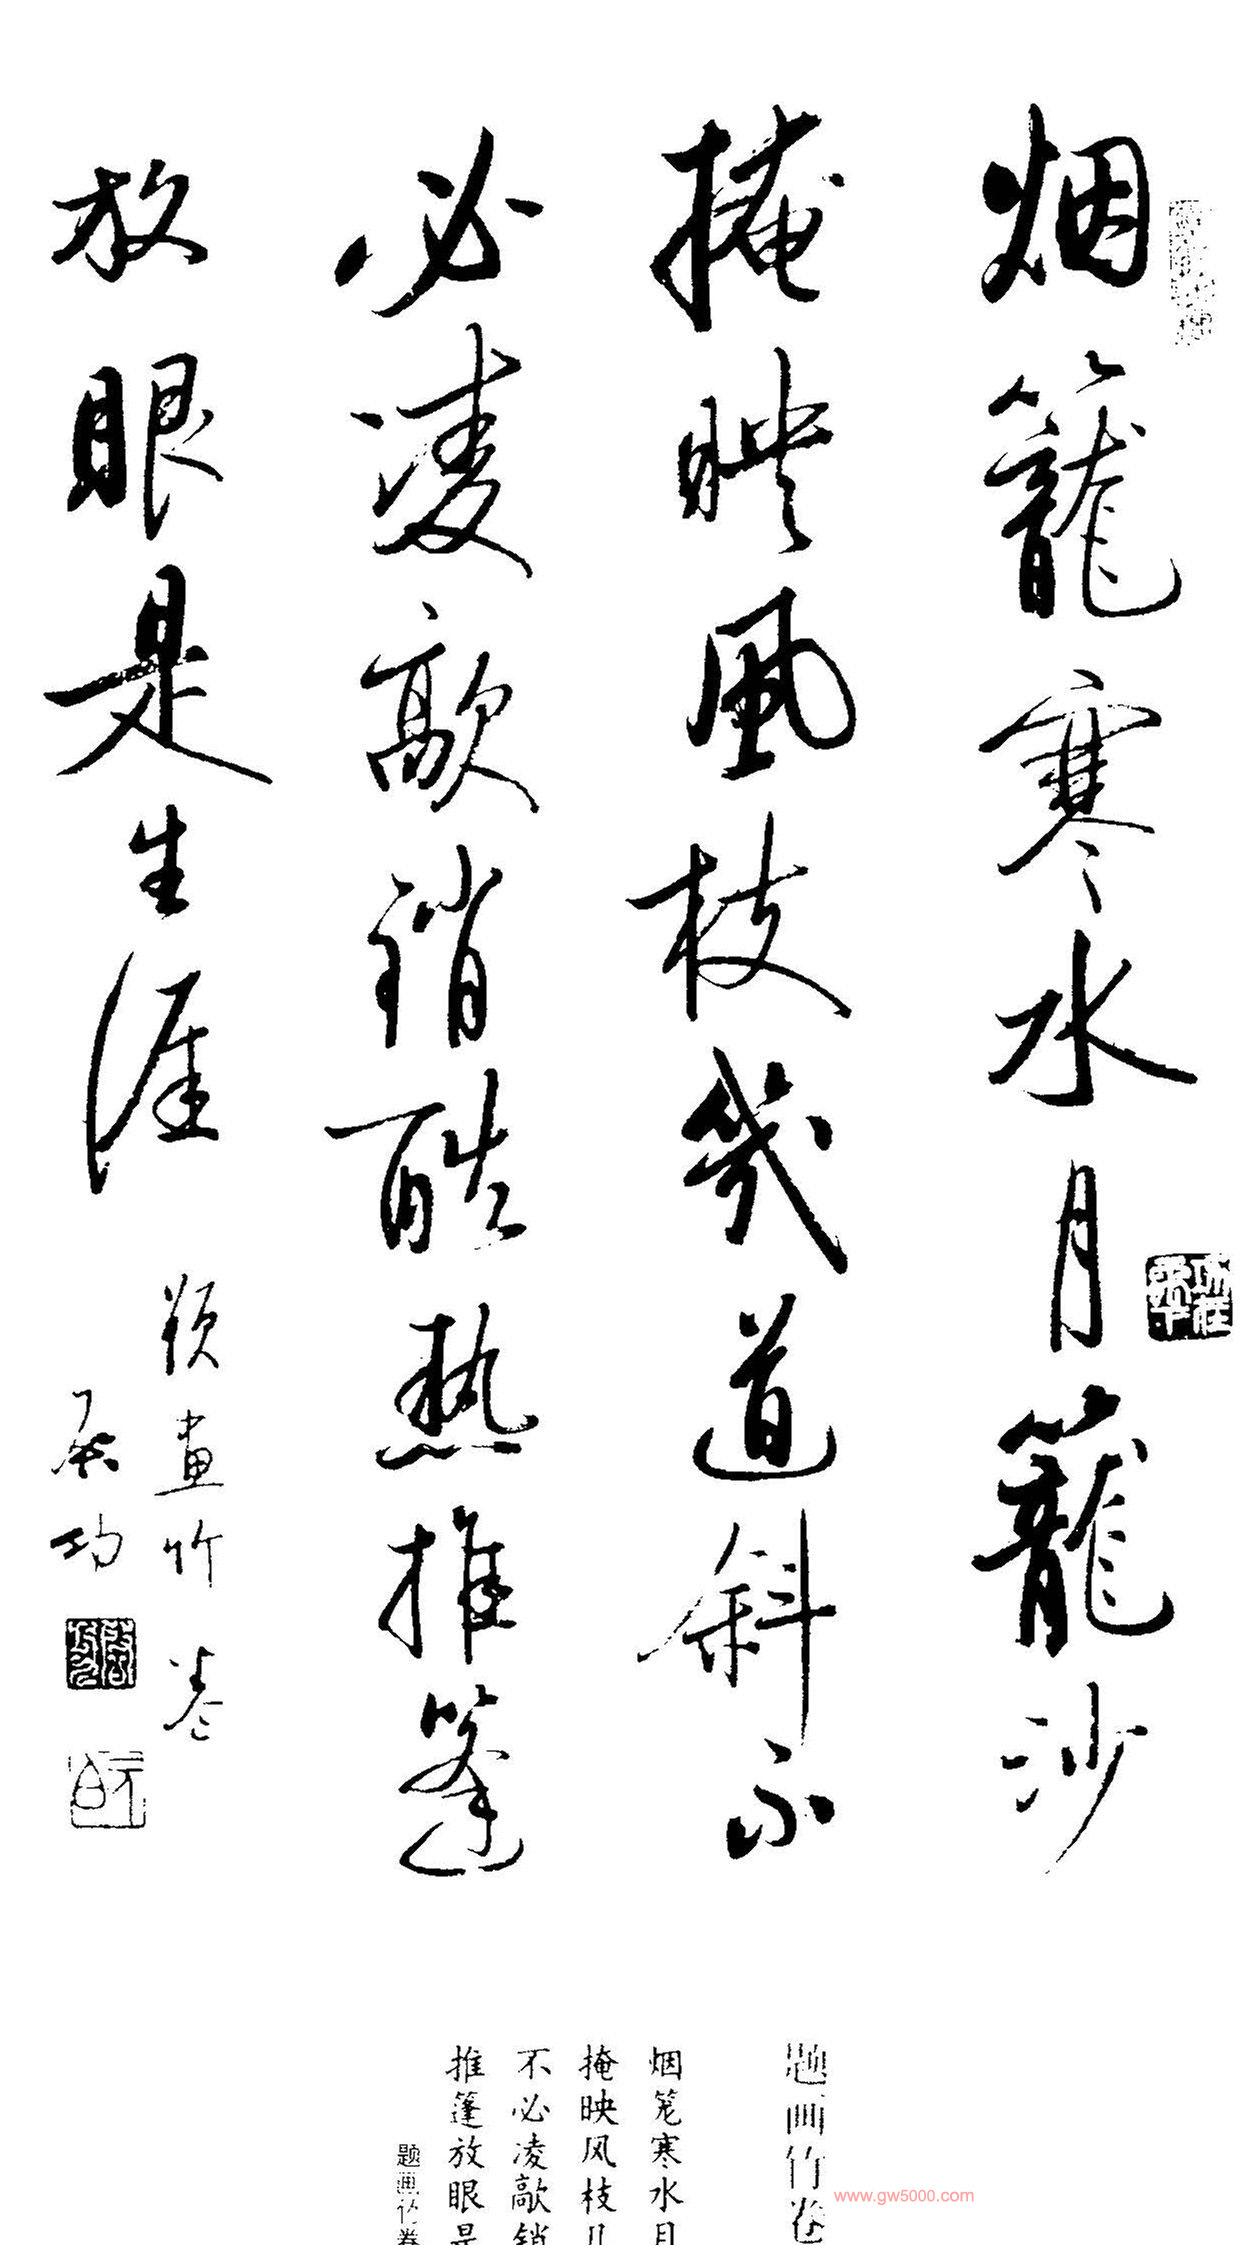 烟籠寒水月籠沙
掩映風枝幾道斜不
必凌歊銷酷热推篷
放眼是生涯
題畫竹卷
启功
题画竹卷
烟笼寒水月
掩映风枝几
不必凌歊销
推篷放眼是
题画竹卷
www.gw5000.com